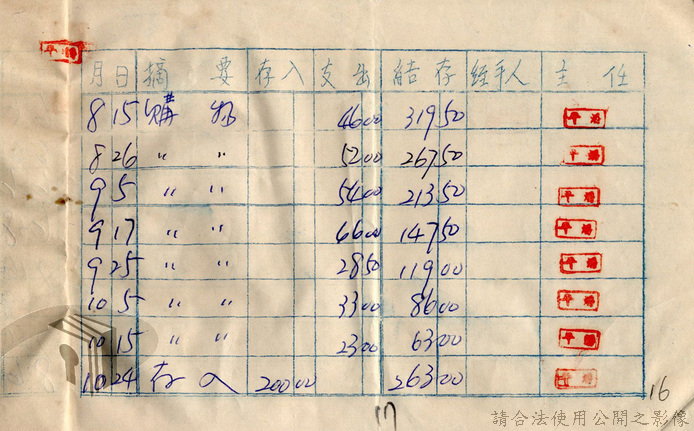 月 日 摘 要 存入 支出 結存 經手人 主 任
8 15 購 4600 319 50
8 26 〃 〃 5200 267 50
9 5 〃 〃 5400 213 50
9 17 〃 〃 6600 147 50
9 25 〃 〃 2850 119 00
10 5 〃 〃 3300 86 00
10 15 〃 〃 2300 63 00
10 24 存 入 200 00 263 00
17
16
請合法使用公開之影像